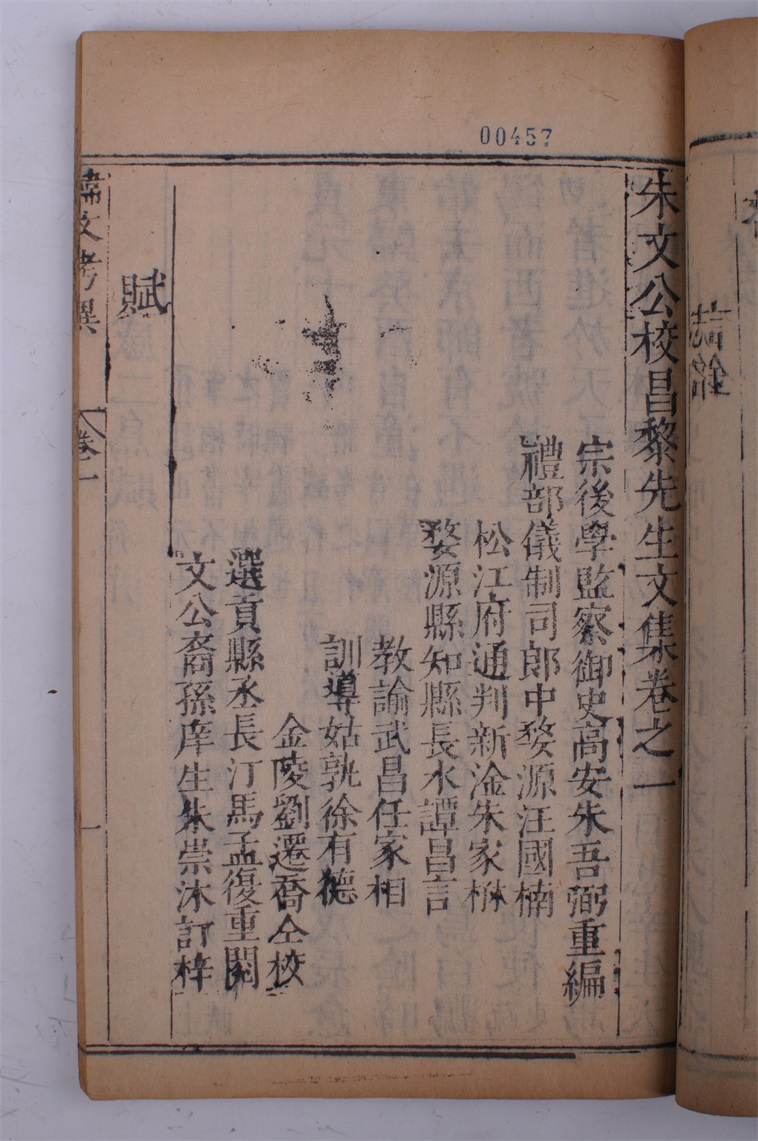 00457
朱文公校昌黎先生文集卷之一
宗後學監察御史高安朱吾弼重編
禮部儀制司郎中婺源汪國楠
松江府通判新淦朱家楙
婺源縣知縣長水譚昌言
教諭武昌任家相
訓導姑孰徐有德
金陵劉遷喬仝校
選貢縣丞長汀馬孟復重閱
文公裔孫庠生朱崇沐訂梓
賦
韓文考異 卷一 一
誌銘